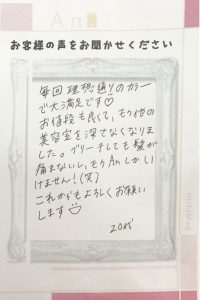 An
お客様の声をお聞かせください
毎回理想通りのカラー
で大満足です♡
お値段も良くて、もう他の
美容室を探さなくなりま
した。ブリーチしても髪が
痛まないし、もうAnしかい
けません！(笑)
これからもよろしくお願い
します
20代
instagram